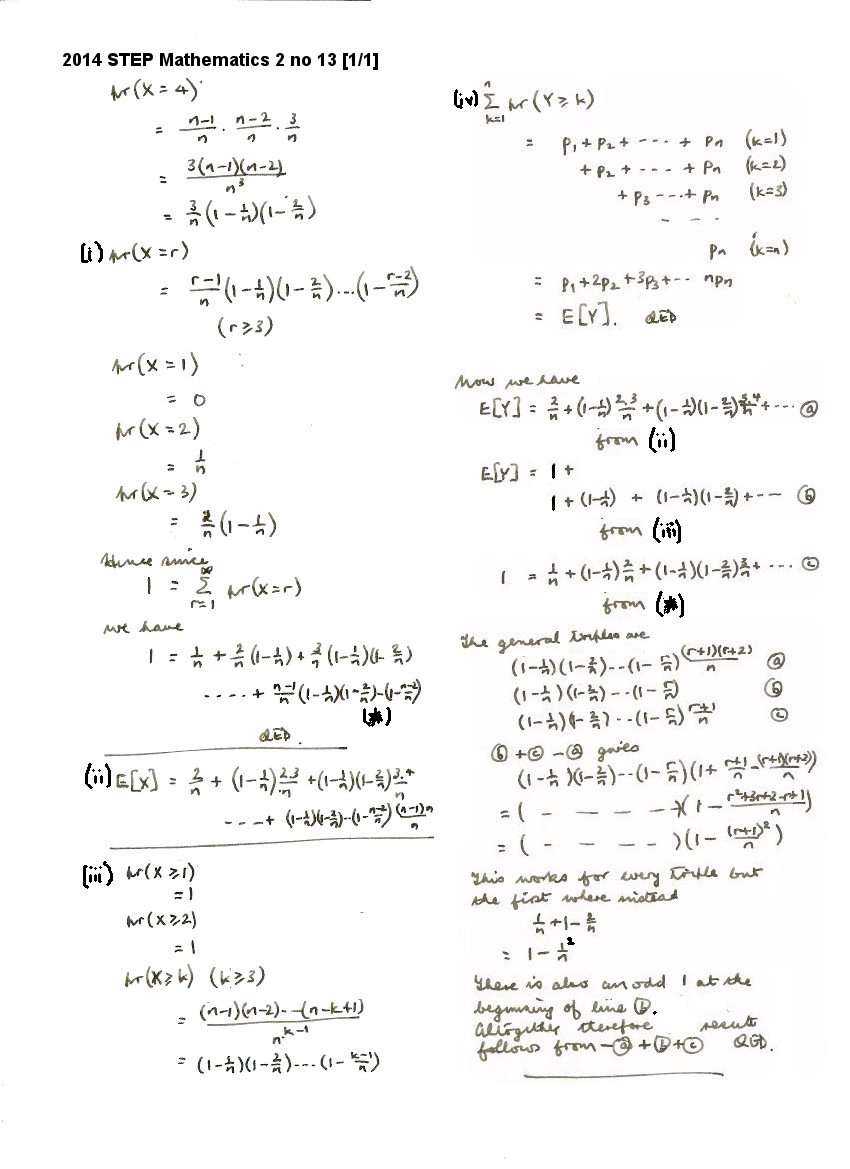 2014 STEP Mathematics 2 no 13 [1/1]
pr(X = 4)
= n-1/n · n-2/n · 3/n
= 3(n-1)(n-2)/n³
= 3/n (1-1/n)(1-2/n)
(i) pr(X = r)
= r-1/n (1-1/n)(1-2/n)...(1-r-2/n)
(r ≥ 3)
pr(X = 1)
= 0
pr(X = 2)
= 1/n
pr(X = 3)
= 2/n (1-1/n)
Hence since
1 = ∞Σr=1 pr(X=r)
we have
1 = 1/n + 2/n (1-1/n) + 3/n (1-1/n)(1-2/n)
---- + n-1/n (1-1/n)(1-2/n)--(1-n-2/n)
(*)
QED.
(ii) E[X] = 2/n + (1-1/n) 2.3/n + (1-1/n)(1-2/n) 3.4/n
---- + (1-1/n)(1-2/n)--(1-n-2/n) (n-1)n/n
(iii) pr(X ≥ 1)
= 1
pr(X ≥ 2)
= 1
pr(X ≥ k) (k ≥ 3)
= (n-1)(n-2)---(n-k+1)/n^k-1
= (1-1/n)(1-2/n)....(1-k-1/n)
(iv) nΣk=1 pr(Y ≥ k)
= p₁ + p₂ + ---- + pn (k=1)
+ p₂ + ---- + pn (k=2)
+ p₃ ---- + pn (k=3)
- - -
pn (k=n)
= p₁ + 2p₂ + 3p₃ + -- npn
= E[Y]. QED
Now we have
E[Y] = 2/n + (1-1/n) 2.3/n + (1-1/n)(1-2/n) 3.4/n + ---- ⓐ
from (ii)
E[Y] = 1 +
1 + (1-1/n) + (1-1/n)(1-2/n) + --- ⓑ
from (iii)
1 = 1/n + (1-1/n) 2/n + (1-1/n)(1-2/n) 3/n + ---- ⓒ
from (*)
The general triples are
(1-1/n)(1-2/n)--(1-r/n) (r+1)(r+2)/n ⓐ
(1-1/n)(1-2/n)--(1-r/n) ⓑ
(1-1/n)(1-2/n)--(1-r/n) r+1/n ⓒ
ⓑ + ⓒ - ⓐ gives
(1-1/n)(1-2/n)--(1-r/n)(1 + r+1/n - (r+1)(r+2)/n)
= ( - - - - )(1 - r²+3r+2-r+1/n)
= ( - - - - )(1 - (r+1)²/n)
This works for every triple but
the first where instead
1/n + 1 - 2/n
= 1 - 1²/n
There is also an odd 1 at the
beginning of line ⓑ.
Altogether therefore result
follows from -ⓐ + ⓑ + ⓒ QED.